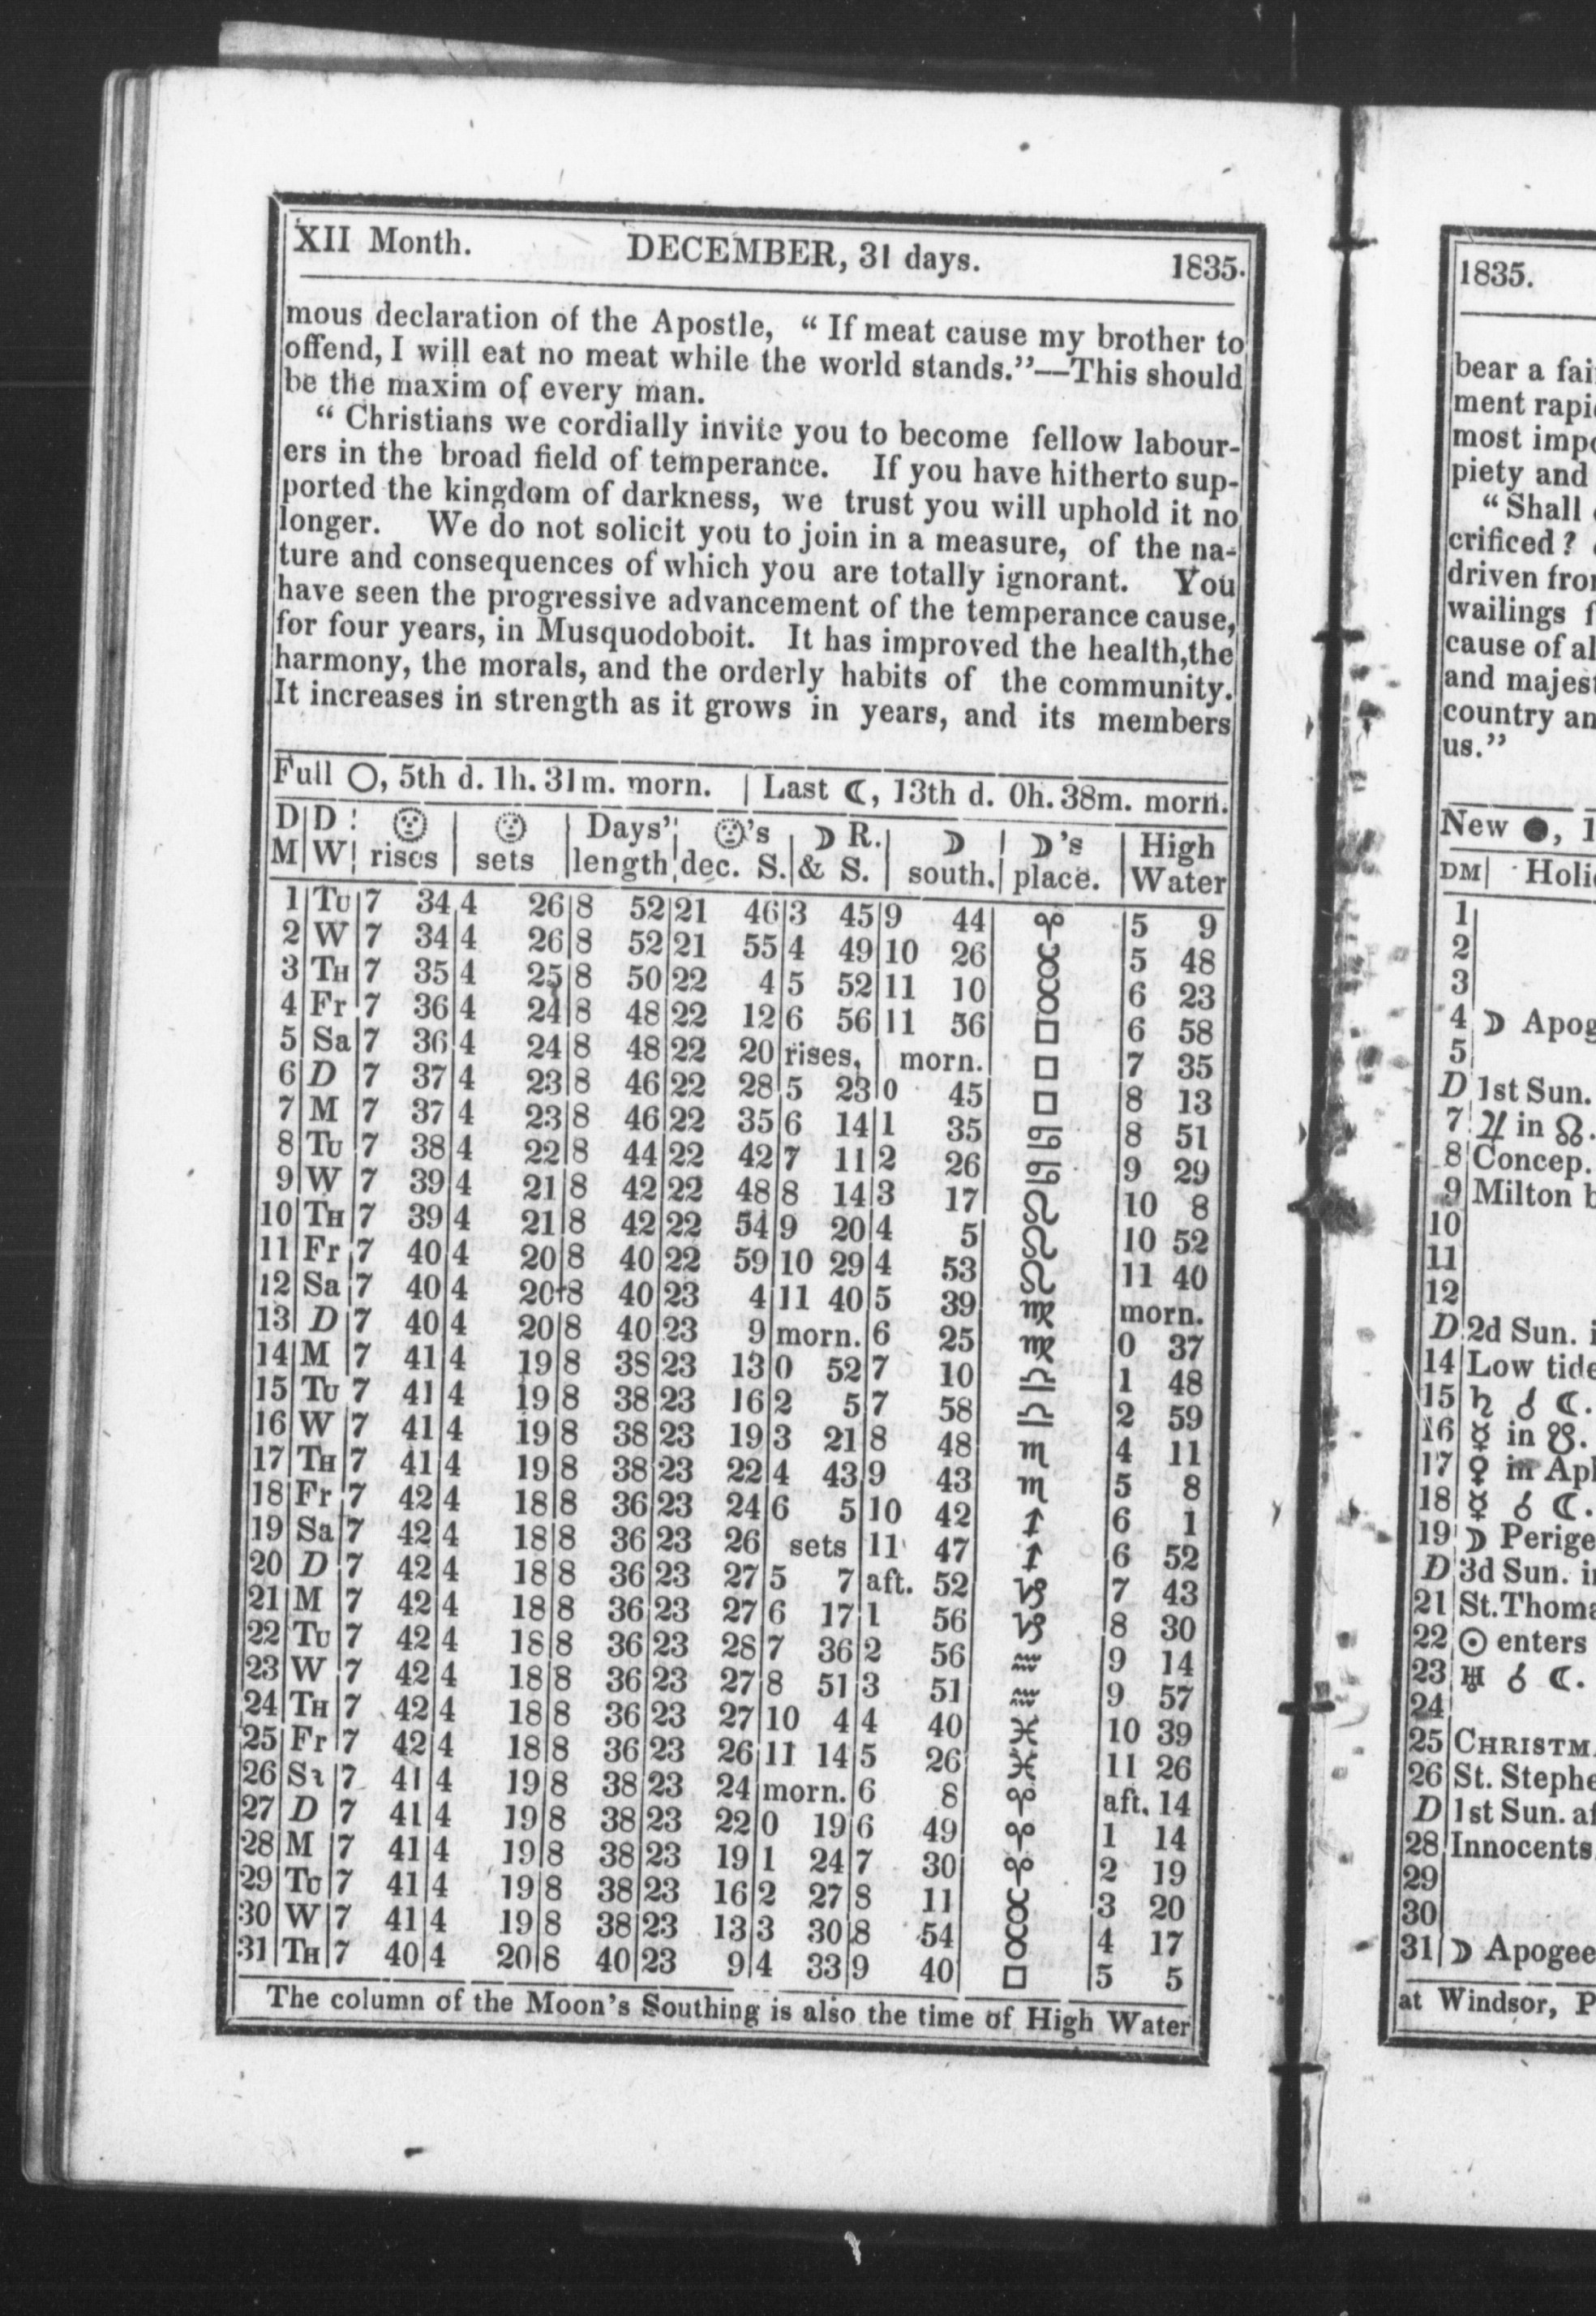 XII Month. DECEMBER, 31 days. 1835.
mous declaration of the Apostle, “ If meat cause my brother to
offend, I will eat no meat while the world stands.”—This should
be the maxim of every man.
“ Christians we cordially invite you to become fellow labour-
ers in the broad field of temperance. If you have hitherto sup-
ported the kingdom of darkness, we trust you will uphold it no
longer. We do not solicit you to join in a measure, of the na-
ture and consequences of which you are totally ignorant. You
have seen the progressive advancement of the temperance cause,
for four years, in Musquodoboit. It has improved the health,the
harmony, the morals, and the orderly habits of the community.
It increases in strength as it grows in years, and its members
Full ○, 5th d. 1h. 31m. morn. | Last ☾, 13th d. 0h. 38m. morn.
D D ☉ ☉ Days' ☉'s ☽ R. ☽ ☽'s High
M W rises sets length dec. S. & S. south. place. Water
1 Tu 7 34 4 26 8 52 21 46 3 45 9 44 ♈ 5 9
2 W 7 34 4 26 8 52 21 55 4 49 10 26 ♉ 5 48
3 Th 7 35 4 25 8 50 22 4 5 52 11 10 ♉ 6 23
4 Fr 7 36 4 24 8 48 22 12 6 56 11 56 □ 6 58
5 Sa 7 36 4 24 8 48 22 20 rises, morn. □ 7 35
6 D 7 37 4 23 8 46 22 28 5 23 0 45 □ 8 13
7 M 7 37 4 23 8 46 22 35 6 14 1 35 ♋ 8 51
8 Tu 7 38 4 22 8 44 22 42 7 11 2 26 ♋ 9 29
9 W 7 39 4 21 8 42 22 48 8 14 3 17 ♌ 10 8
10 Th 7 39 4 21 8 42 22 54 9 20 4 5 ♌ 10 52
11 Fr 7 40 4 20 8 40 22 59 10 29 4 53 ♌ 11 40
12 Sa 7 40 4 20 8 40 23 4 11 40 5 39 ♍ morn.
13 D 7 40 4 20 8 40 23 9 morn. 6 25 ♍ 0 37
14 M 7 41 4 19 8 38 23 13 0 52 7 10 ♎ 1 48
15 Tu 7 41 4 19 8 38 23 16 2 5 7 58 ♎ 2 59
16 W 7 41 4 19 8 38 23 19 3 21 8 48 ♏ 4 11
17 Th 7 41 4 19 8 38 23 22 4 43 9 43 ♏ 5 8
18 Fr 7 42 4 18 8 36 23 24 6 5 10 42 ♐ 6 1
19 Sa 7 42 4 18 8 36 23 26 sets 11 47 ♐ 6 52
20 D 7 42 4 18 8 36 23 27 5 7 aft. 52 ♑ 7 43
21 M 7 42 4 18 8 36 23 27 6 17 1 56 ♑ 8 30
22 Tu 7 42 4 18 8 36 23 28 7 36 2 56 ♒ 9 14
23 W 7 42 4 18 8 36 23 27 8 51 3 51 ♒ 9 57
24 Th 7 42 4 18 8 36 23 27 10 4 4 40 ♓ 10 39
25 Fr 7 42 4 18 8 36 23 26 11 14 5 26 ♓ 11 26
26 Sa 7 41 4 19 8 38 23 24 morn. 6 8 ♈ aft. 14
27 D 7 41 4 19 8 38 23 22 0 19 6 49 ♈ 1 14
28 M 7 41 4 19 8 38 23 19 1 24 7 30 ♈ 2 19
29 Tu 7 41 4 19 8 38 23 16 2 27 8 11 ♉ 3 20
30 W 7 41 4 19 8 38 23 13 3 30 8 54 ♉ 4 17
31 Th 7 40 4 20 8 40 23 9 4 33 9 40 □ 5 5
The column of the Moon's Southing is also the time of High Water
1835.
bear a fai
ment rapi
most impo
piety and
“Shall
crificed?
driven fro
wailings f
cause of al
and majes
country an
us.”
New ●, 1
DM Holi
1
2
3
4 ☽ Apog
5
D 1st Sun.
7 ♃ in ☊.
8 Concep.
9 Milton b
10
11
12
D 2d Sun. i
14 Low tide
15 ♄ ☌ ☾.
16 ☿ in ☋.
17 ♀ in Aph
18 ☿ ☌ ☾.
19 ☽ Perige
D 3d Sun. i
21 St.Thoma
22 ☉ enters
23 ♅ ☌ ☾.
24
25 CHRISTM
26 St. Stephe
D 1st Sun. af
28 Innocents
29
30
31 ☽ Apogee
at Windsor, P